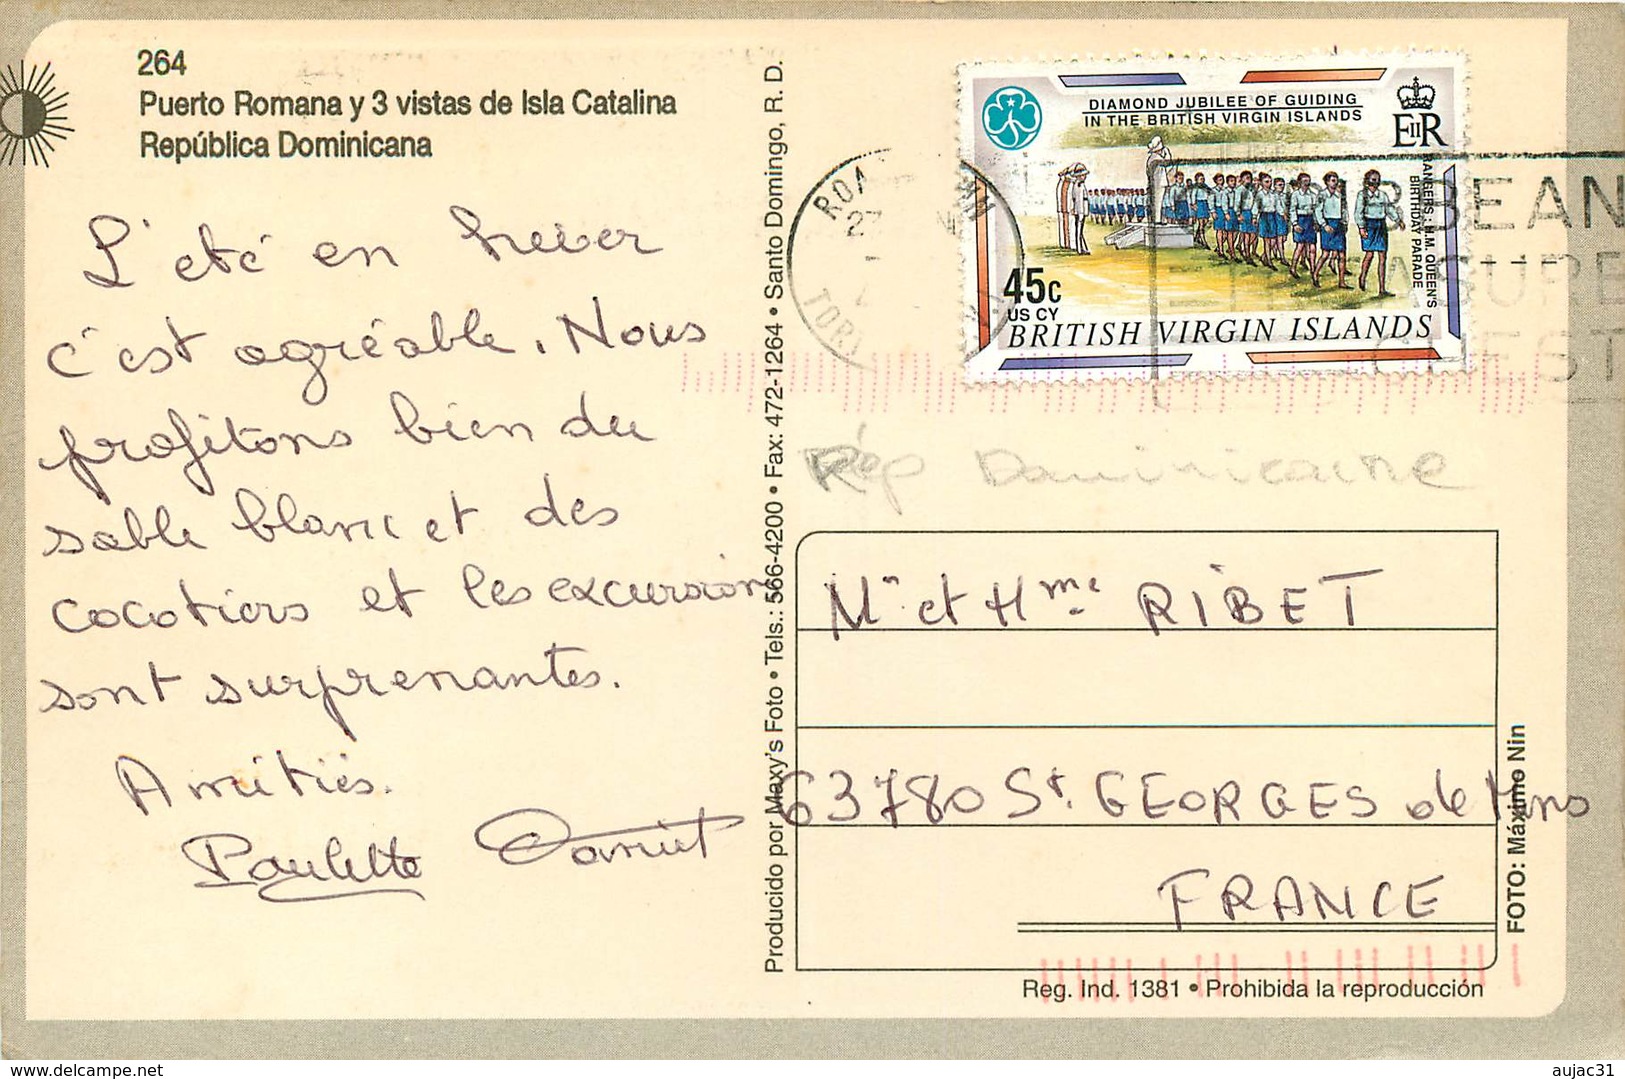 264
Puerto Romana y 3 vistas de Isla Catalina
República Dominicana
L'été en hiver
c'est agréable. Nous
profitons bien du
sable blanc et des
cocotiers et les excursions
sont surprenantes.
Amitiés.
Paulette
Producido por Maxy's Foto • Tels.: 566-4200 • Fax: 472-1264 • Santo Domingo, R. D.
DIAMOND JUBILEE OF GUIDING
IN THE BRITISH VIRGIN ISLANDS
EIIR
RANGERS : H.M. QUEEN'S
BIRTHDAY PARADE
45c
US CY
BRITISH VIRGIN ISLANDS
ROA
27
TOR
BBEAN
EST
Rép Dominicaine
Mr et Mme RIBET
63780 St. GEORGES de Mons
FRANCE
FOTO: Máximo Nin
Reg. Ind. 1381 • Prohibida la reproducción
www.delcampe.net
aujac31